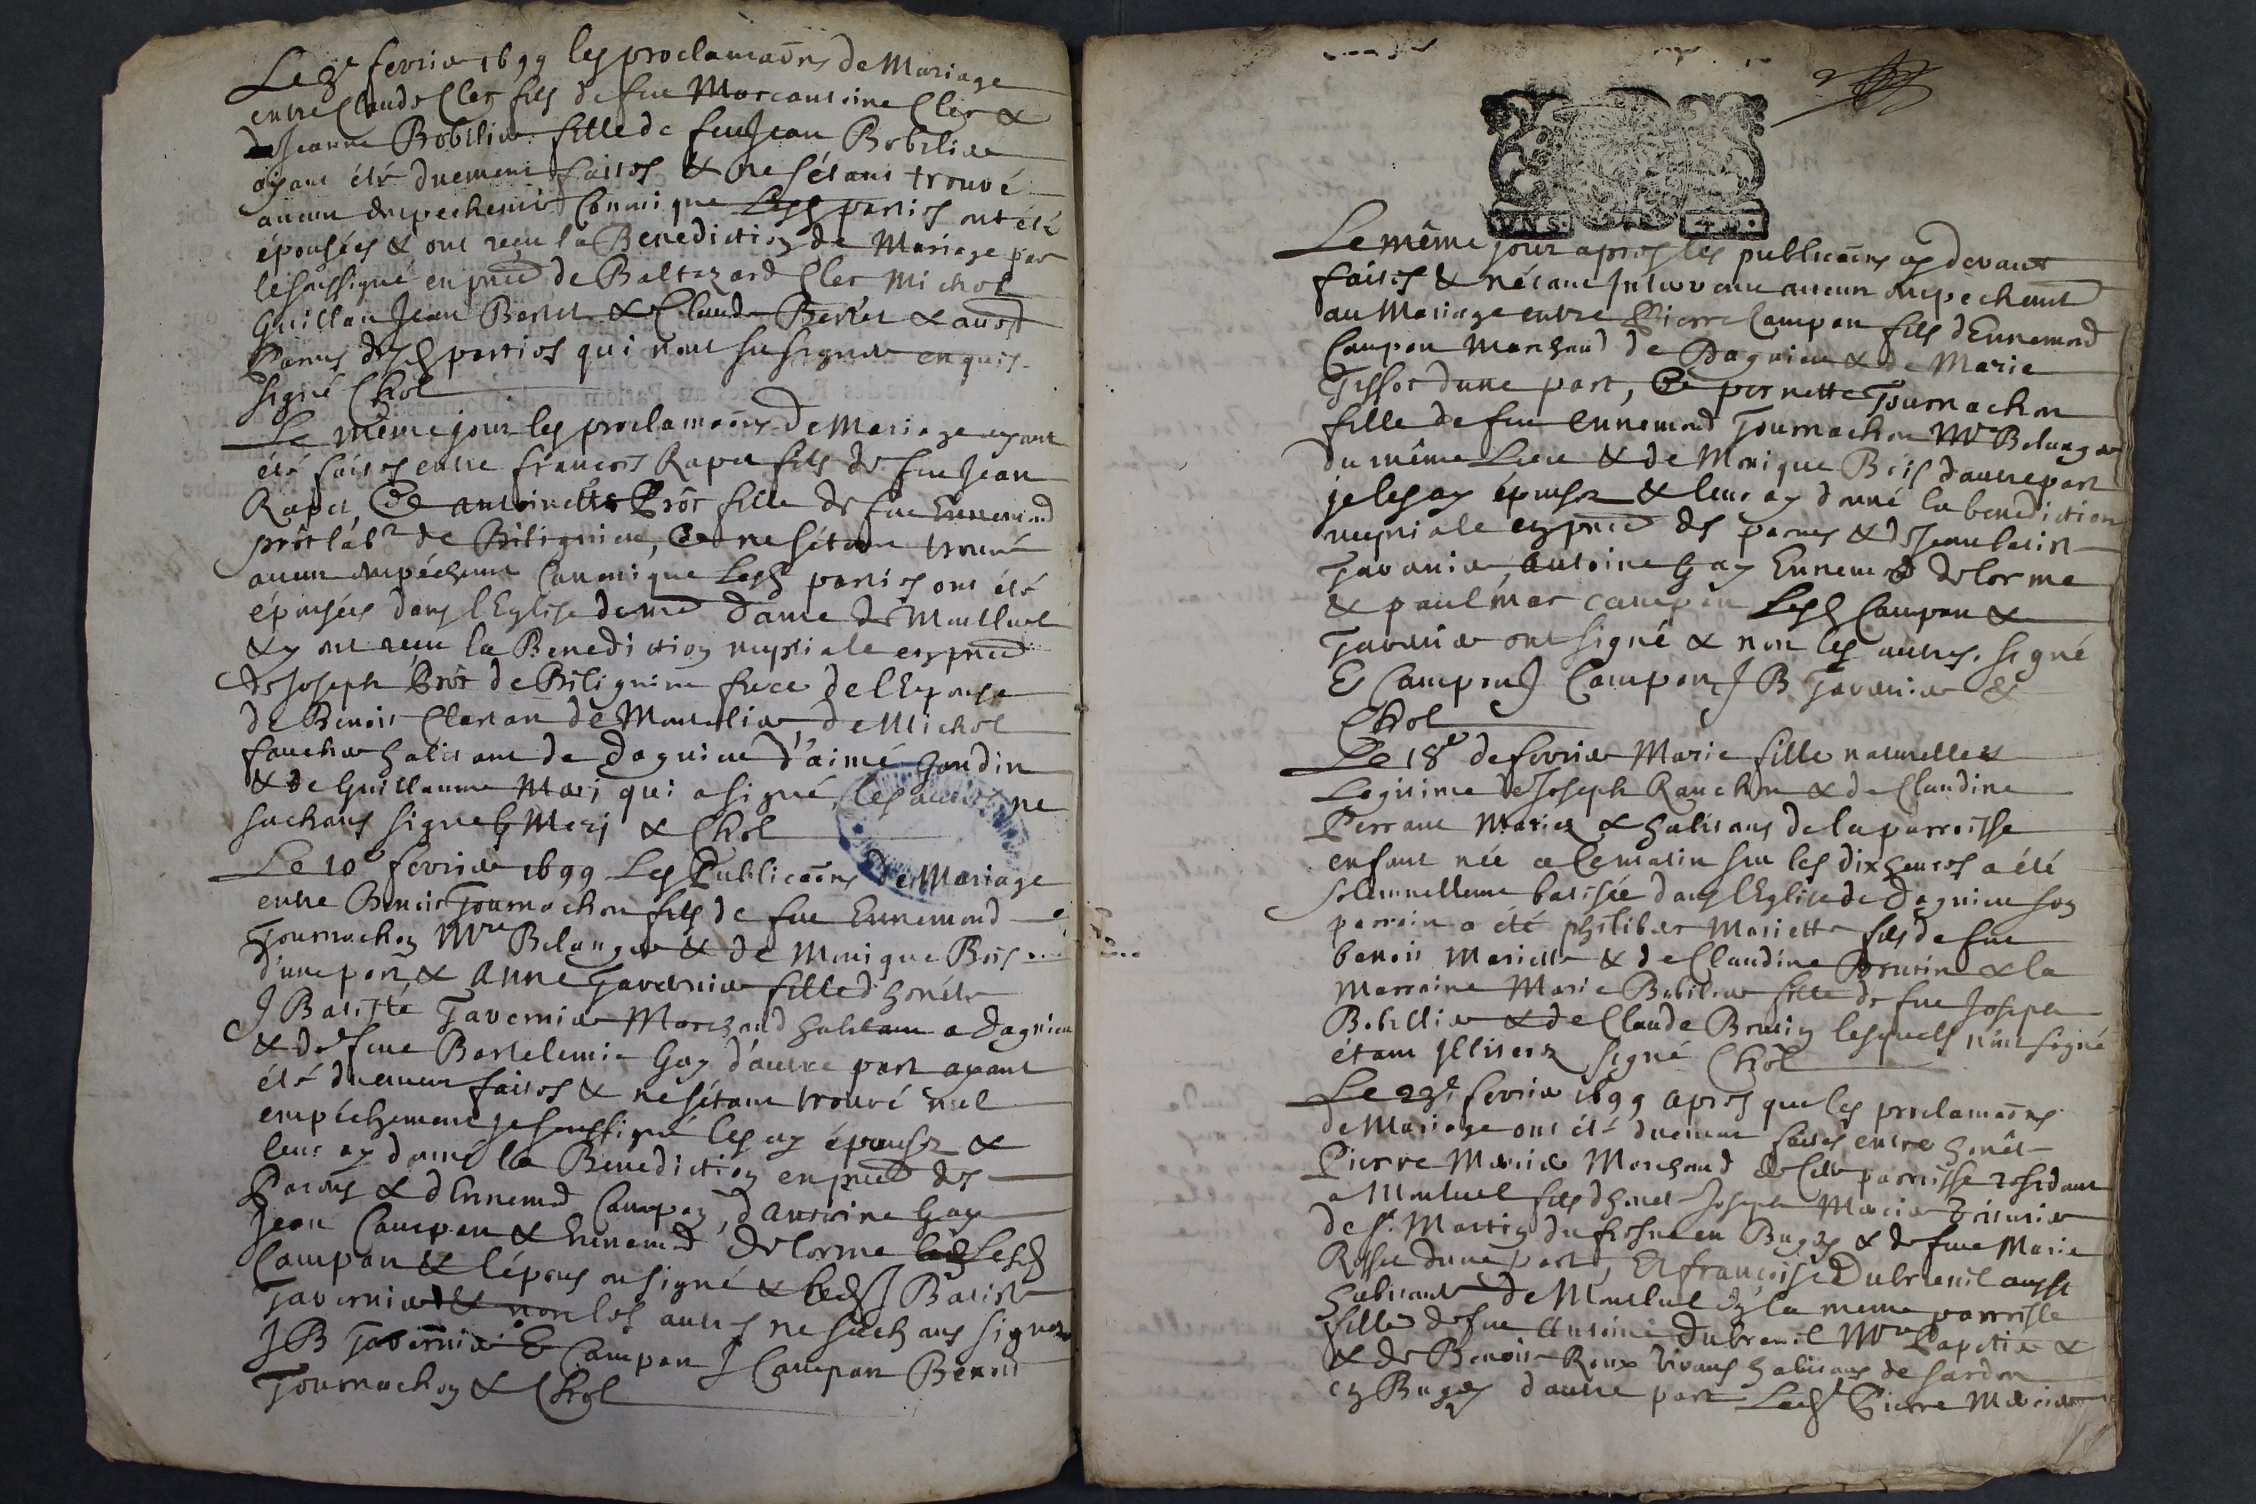 Le 3e fevrier 1699 les proclamaõns de Mariage
entre Claude Cler fils de feu Marcantoine Cler &
de Jeanne Bobilier fille de feu Jean Bobilier
ayant été duement faites & ne s'étant trouvé
aucun empechemt Canonique Lesd parties ont été
épousées & ont reçu la Benediction de Mariage par
le soussigné en pnce de Baltazard Cler Michel
Guillau Jean Bertet & Claude Bertet & aust
Parens desd parties qui n'ont su signer enquis
signé Chol
Le même jour les proclamaõns de Mariage ayant
été faites entre françois Rapet fils de feu Jean
Rapet, Et antoinette Prôt fille de feu Ennemond
prôt labr de Biligneux, Et ne s'étant trouvé
aucun empéchemt Canonique Lesd parties ont été
épousées dans l'Eglise de nre Dame de Montluel
& y ont reçu la Benediction nuptiale en pnce
de Joseph Prôt de Biligneux frere de l'Epouse
de Benoit Clavan de Montelier, de Michel
faucher habitant de Dagnieu d'aimé Gondin
& de Guillaume Meri qui a signé, les autres ne
sachans signer G Meri & Chol
Le 10e fevrier 1699 Les Publicaõns de Mariage
entre Benoit Tournachon fils de feu Ennemond
Tournachon Mre Belanger & de Monique Bois
d'une part & Anne Tavernier fille d'honête
J Batiste Tavernier Marchand habitant a Dagnieu
& de feue Bartelemie Gay d'autre part ayant
été duement faites & ne s'étant trouvé nul
empéchement je soussigné les ay épousez &
leur ay donné la Benediction en pnce des
Parens & d'Ennemd Campan, d'Antoine Gay
Jean Campan & Ennemd Delorme Lesd
Campan & l'épous on signé & led J Batiste
Tavernier & non les autres ne sachans signer
J B Tavernier E Campan J Campan Benoit
Tournachon & Chol
Le même jour apres les publicaõns cy devant
faites & n'étant Intervenu aucun empechemt
au Mariage entre Pierre Campan fils d'Ennemond
Campan Marchand de Dagnieu & de Marie
Tissot d'une part, Et pernette Tournachon
fille de feu Ennemond Tournachon Mre Belanger
du même Lieu & de Monique Bois d'autre part
je les ay épousez & leur ay donné la benediction
nuptiale en pnce des parens & de Jean batiste
Tavernier, antoine Gay Ennemd delorme
& paul mar campan Lesd Campan &
Tavernier ont signé & non les autres. signé
E Campan J Campan J B Tavernier &
Chol
Le 18e de fevrier Marie fille naturelle &
Legitime de Joseph Ranchon & de Claudine
Perrant Mariez & habitans de la parroisse
enfant née ce Le matin sur les dix heures a été
solemnellemt batisée dans l'Eglise de Dagnieu son
parrain a été philibert Mariette fils de feu
benoit Mariette & de Claudine Brusin & la
Marraine Marie Bobilier fille de feu Joseph
Bobillier & de Claude Brusin lesquels n'ont signé
étant Illiterez signé Chol
Le 23e fevrier 1699 apres que les proclamaõns
de Mariage ont été duement faites entre honête
Pierre Mercier Marchand de Cette parroisse residant
a Montluel fils d'honet Joseph Mercier
de St Martin du fresne en Bugey & de feue Marie
Rosset d'une part, Et françoise Dubreuil aussi
habitante de Montluel dy la meme parroisse
fille de feu Antoine Dubreuil Mre Papetier &
& de Benoite Roux vivans habitans de Jardon
en Bugey d'autre part Ledt Pierre Mercier